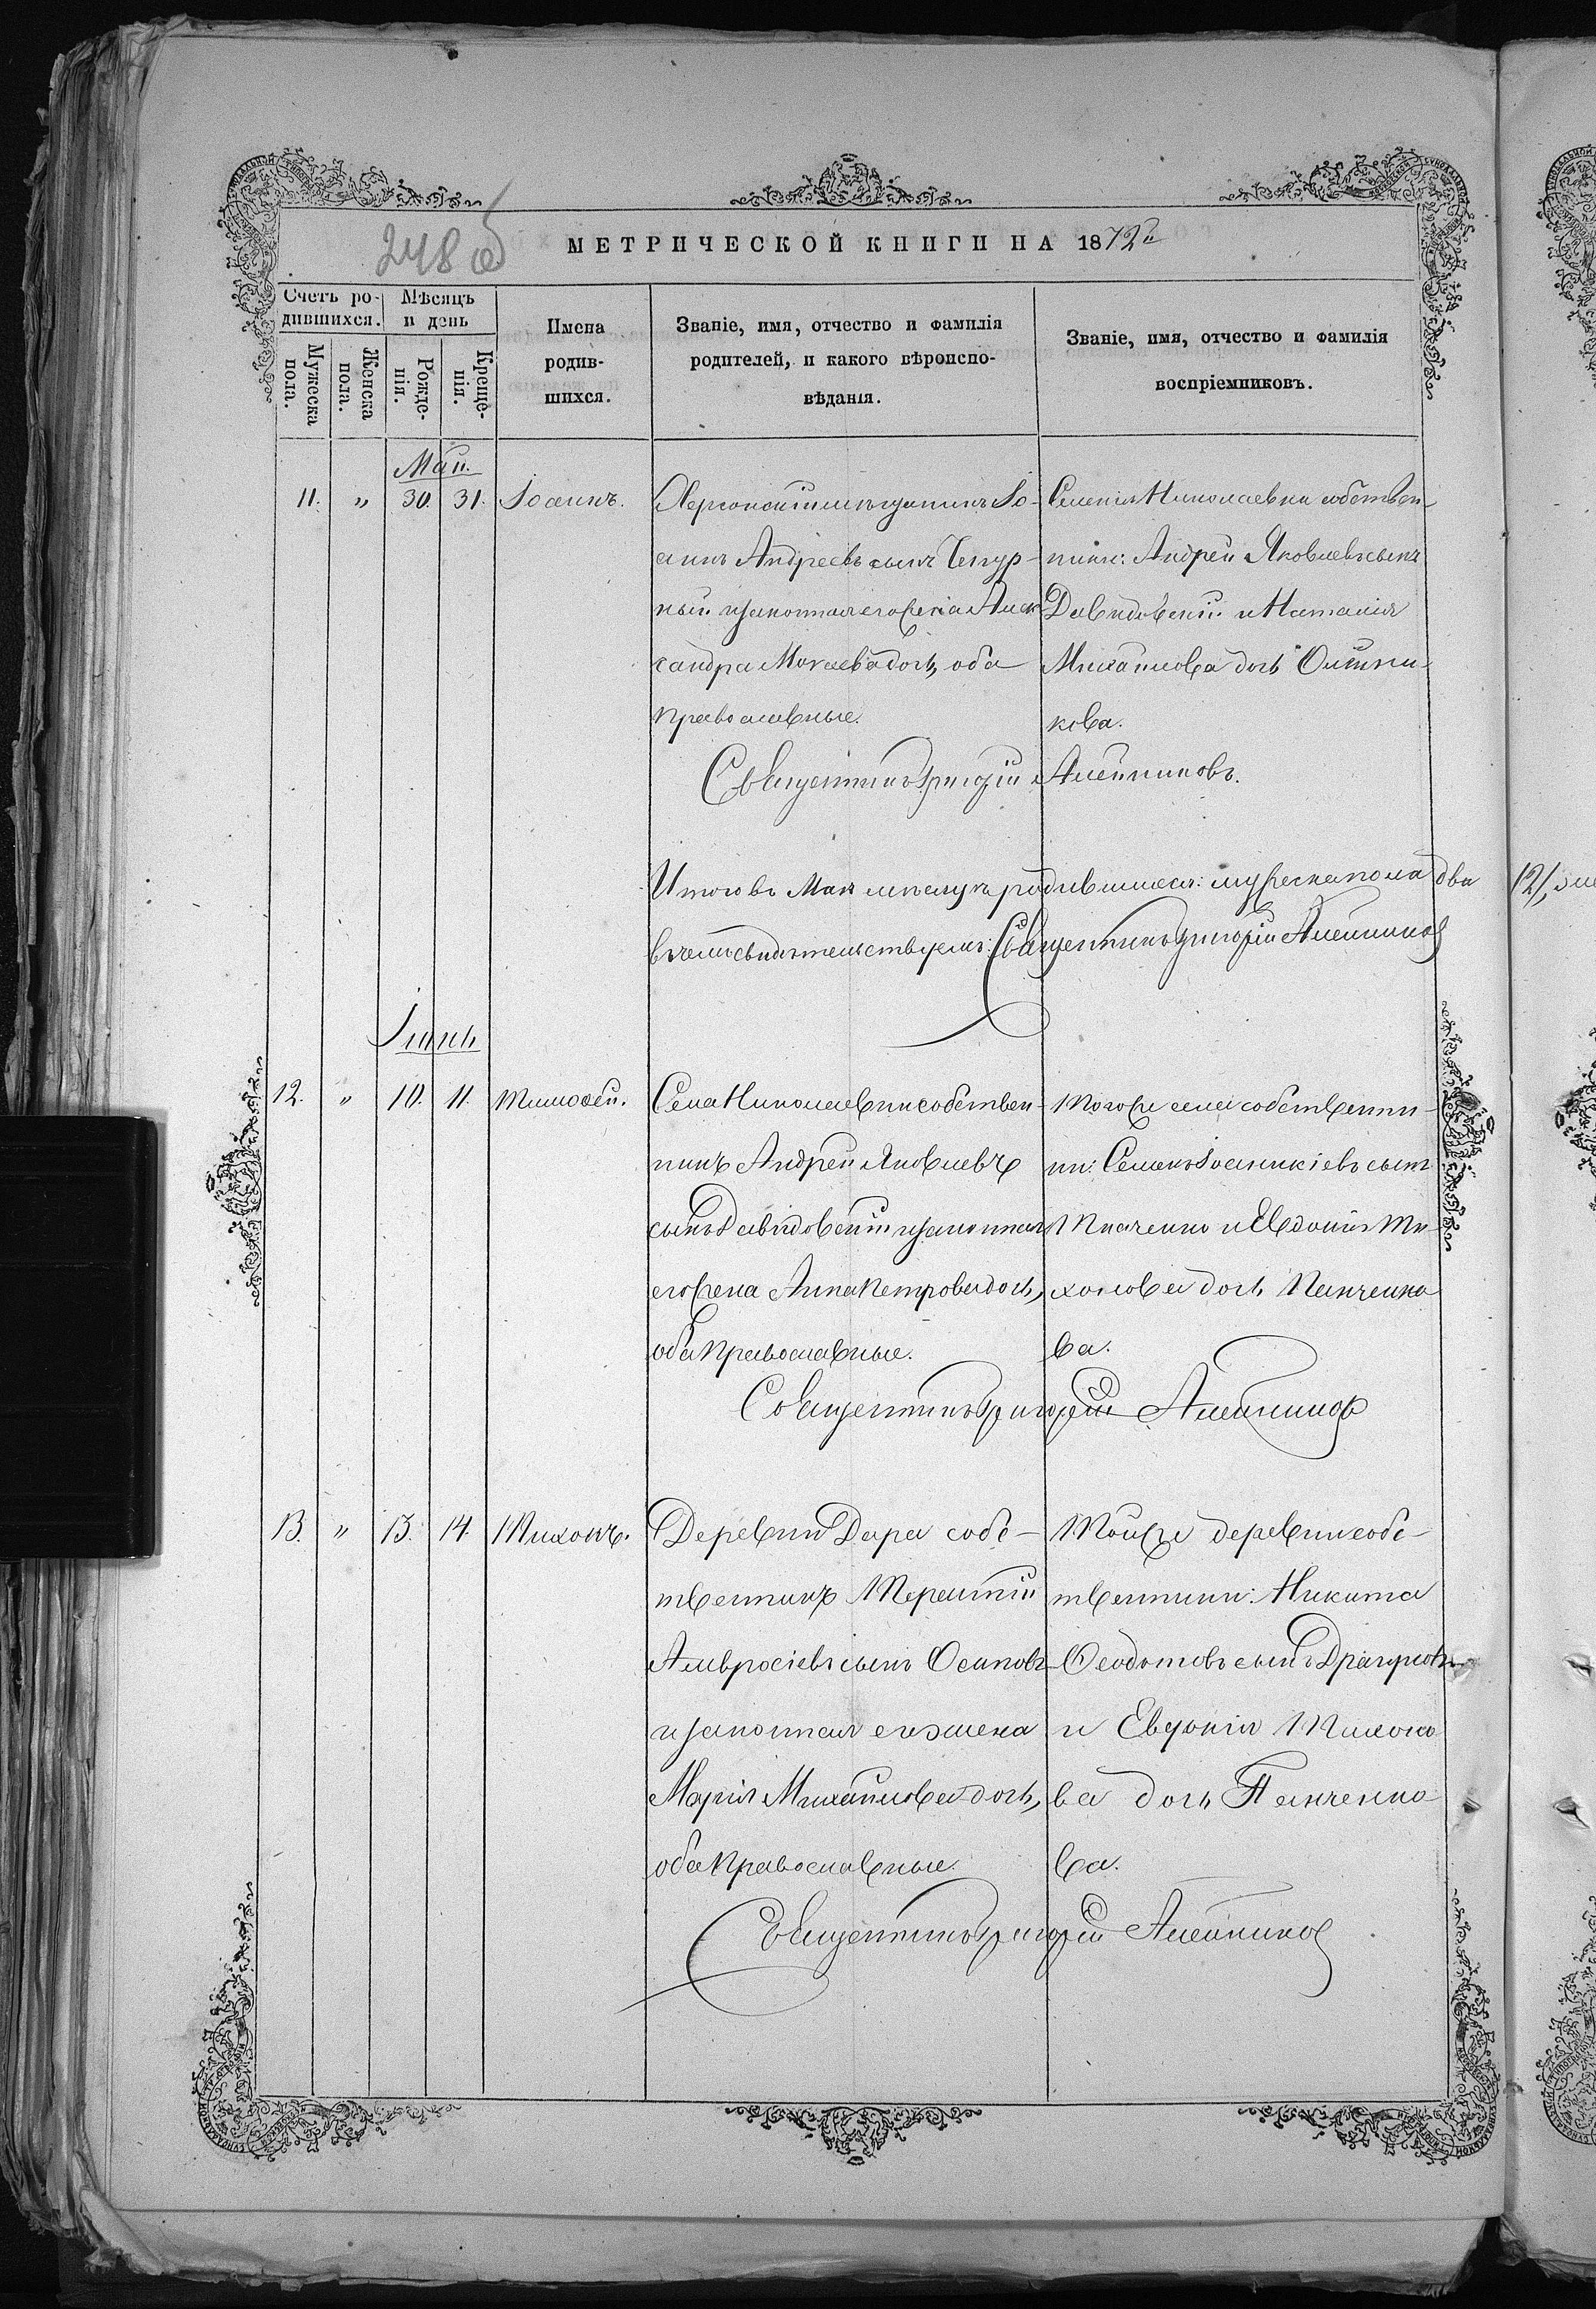 248 об
МЕТРИЧЕСКОЙ КНИГИ НА 1872й
Счетъ ро-
дившихся.
Мѣсяцъ
и день
Мужеска
пола.
Женска
пола.
Рожде-
нія.
Креще-
нія.
Имена
родив-
шихся.
Званіе, имя, отчество и фамилія
родителей, и какого вѣроиспо-
вѣданія.
Званіе, имя, отчество и фамилія
воспріемниковъ.
Май.
11. " 30. 31. Іоаннъ.
Херсонскій мѣщанинъ Іо-
аннъ Андреевъ сынъ Чепур-
ный и законная его жена Алек
сандра Мокаева дочь, оба
православные.
Селенія Николаевки собствен-
ники: Андрей Яковлевъ сынъ
Давидовскій и Наталія
Михаилова дочь Олейни-
кова.
Священникъ Григорій Алейниковъ.
Итого въ Маѣ мѣсяцѣ родившихся: мужеска пола два
въ чемъ свидѣтельствуемъ: Священникъ Григорій Алейниковъ
Іюнь
12. " 10. 11. Тимоѳей.
Села Николаевки собствен-
никъ Андрей Яковлевъ
сынъ Давидовскій и законная
его жена Анна Петрова дочь,
оба православные.
Того же села собственни-
ки: Семенъ Іоанникіевъ сынъ
Ткаченко и Евдокія Ти-
хонова дочь Панченко
ва.
Священникъ Григорій Алейниковъ
13. " 13. 14. Тихонъ.
Деревни Дара собс-
твенникъ Терентій
Амвросіевъ сынъ Осиповъ
и законная его жена
Марія Михаилова дочь,
оба православные.
Той же деревни собс-
твенники: Никита
Ѳеодотовъ сынъ
и Евдокія Тихоно
ва дочь Панченко
ва.
Священникъ Григорій Алейниковъ
12/,